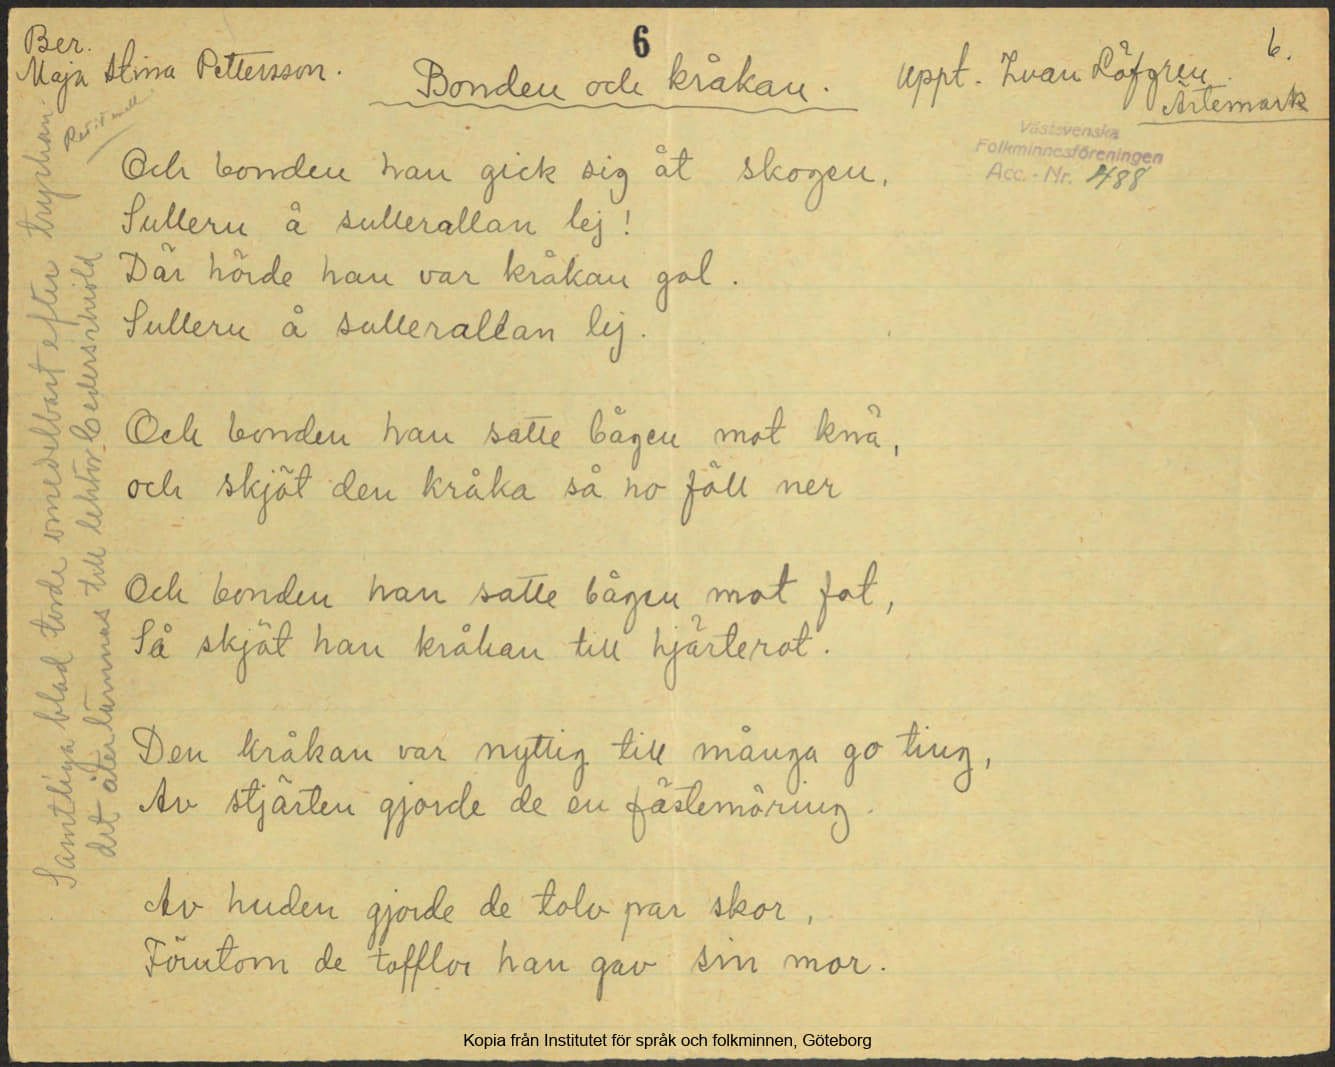 Ber.
Maja Stina Pettersson.
6
Bonden och kråkan.
uppt. Ivan Löfgren.
Ärtemark
6.
Västsvenska
Folkminnesföreningen
Acc.-Nr. 488
Och bonden han gick sig åt skogen,
Sulleru å sullerallan lej!
Där hörde han var kråkan gol.
Sulleru å sullerallan lej.
Och bonden han satte bågen mot knä,
och skjöt den kråka så ho föll ner
Och bonden han satte bågen mot fot,
Så skjöt han kråkan till hjärterot.
Den kråkan var nyttig till många go ting,
Av stjärten gjorde de en fästemöring.
Av huden gjorde de tolv par skor,
Förutom de tofflor han gav sin mor.
Samtliga blad torde omedelbart efter
det återlämnas till lektor Cederschiöld
Kopia från Institutet för språk och folkminnen, Göteborg